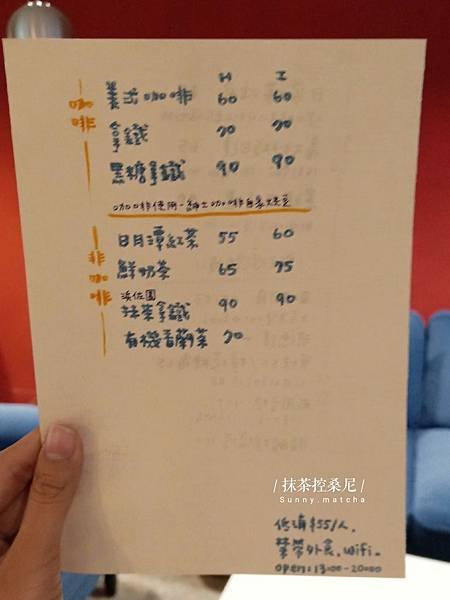 H I
咖啡
美式咖啡 60 60
拿鐵 70 70
黑糖拿鐵 90 90
咖啡使用-紳士咖啡自家烘豆
非咖啡
日月潭紅茶 55 60
鮮奶茶 65 75
浜佐園
抹茶拿鐵 90 90
有機香蘭茶 70
/ 抹茶控桑尼 /
Sunny.matcha
低消$55/人。
禁帶外食。wifi。
open:13:00-20:00